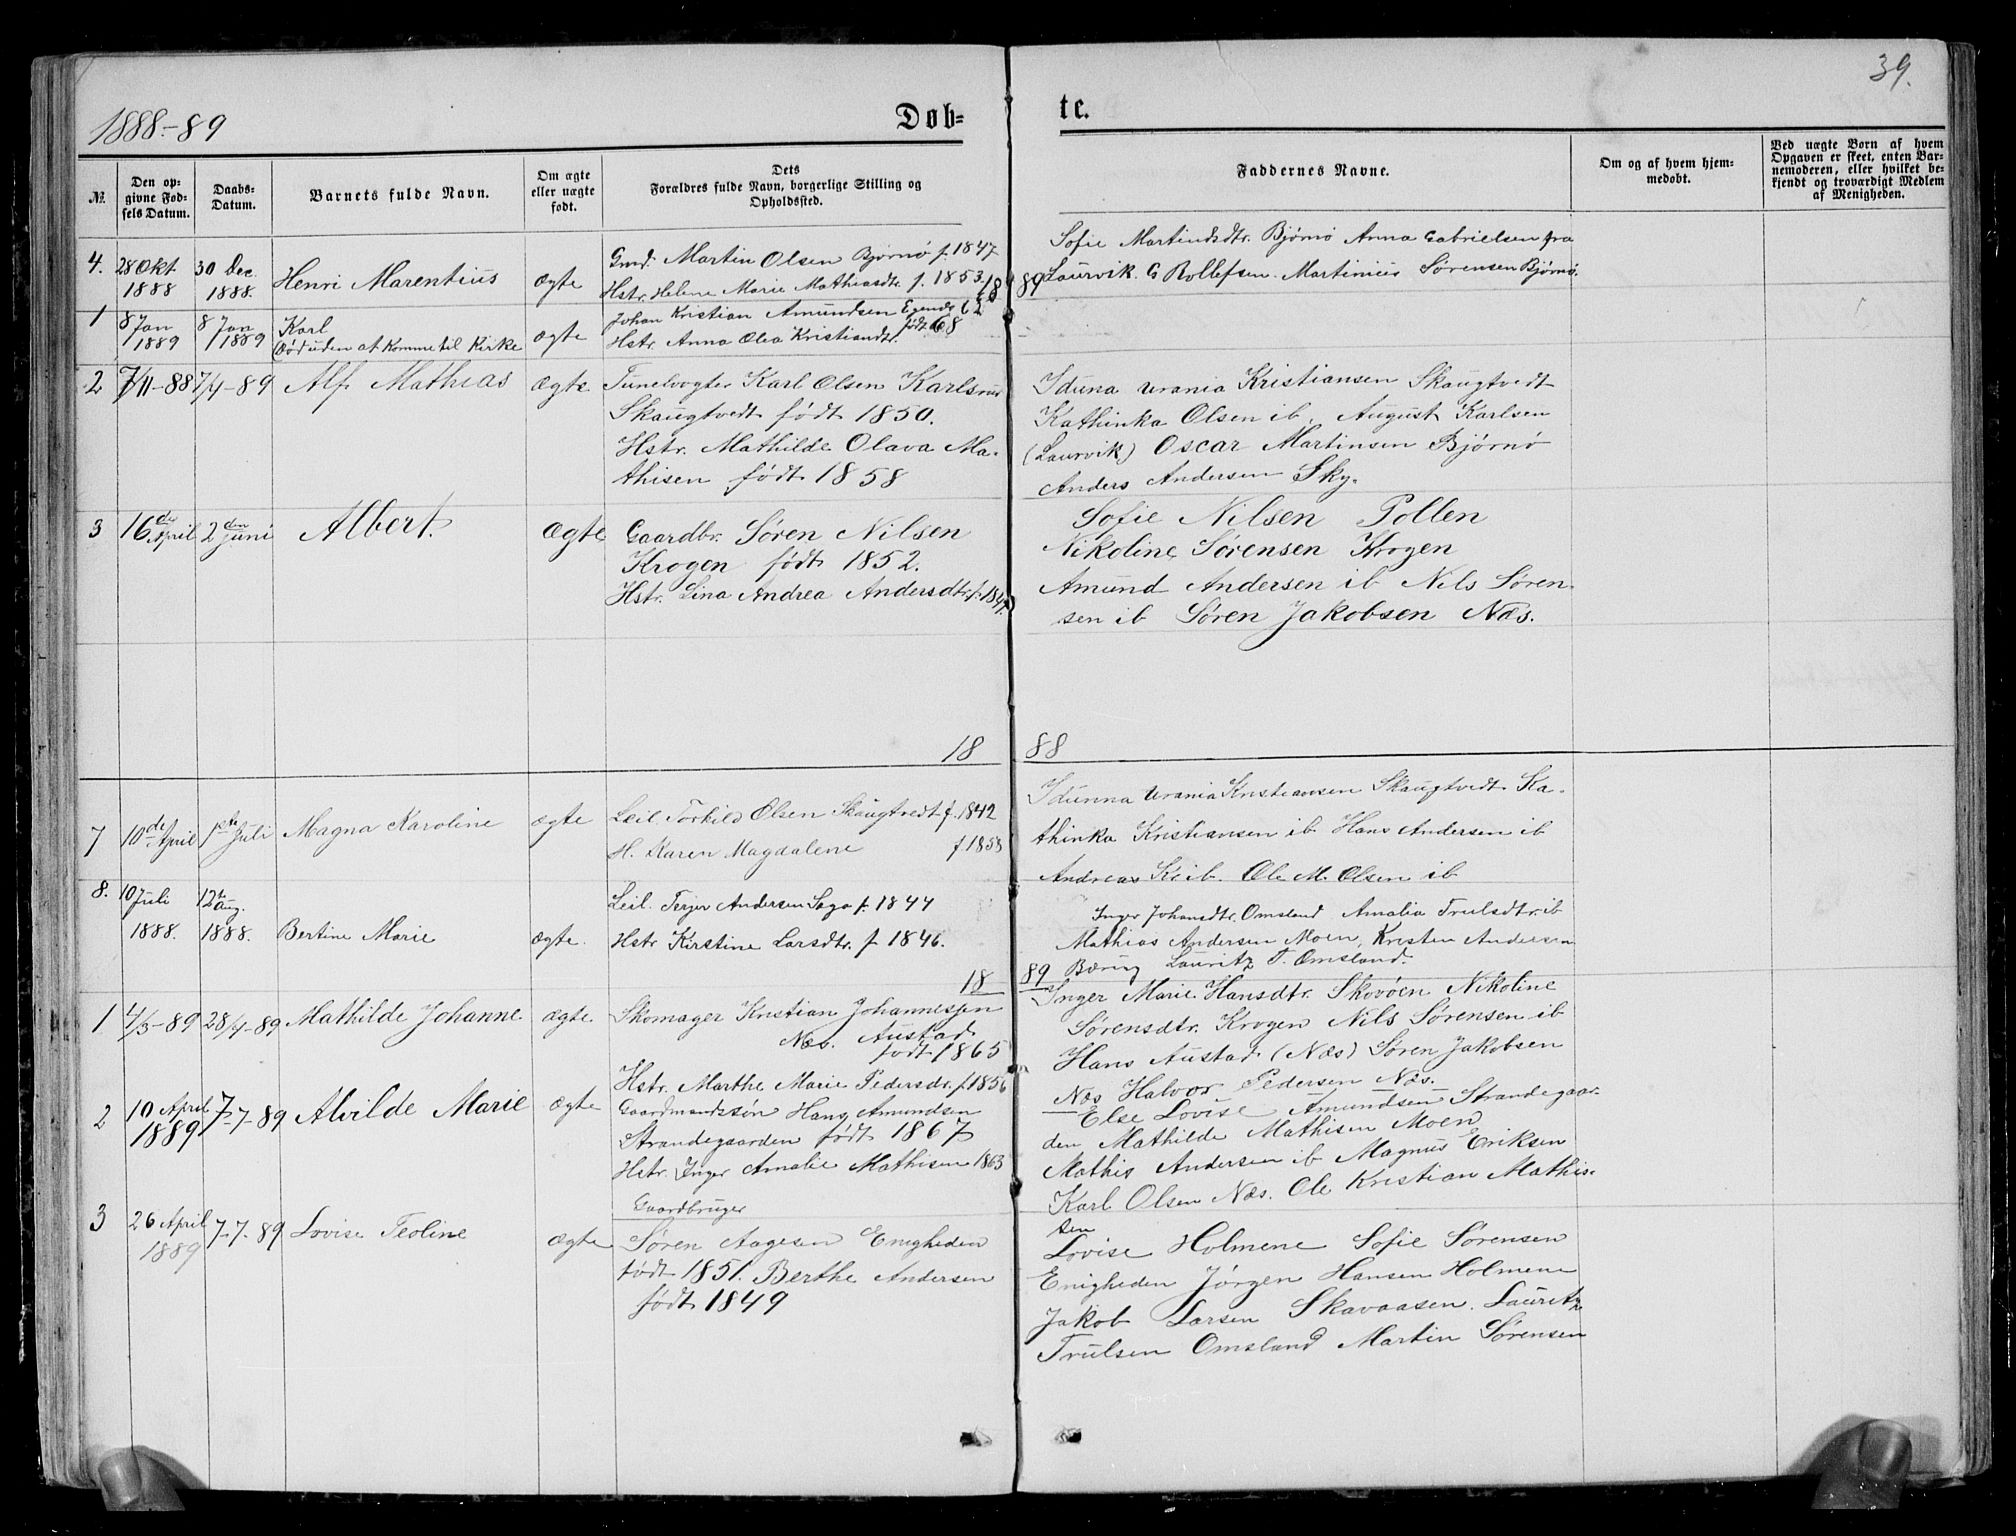 39.
1888-89
Døb-
te.
№.
Den op-
givne Fød-
sels Datum.
Daabs-
Datum.
Barnets fulde Navn.
Om ægte
eller uægte
født.
Dets
Forældres fulde Navn, borgerlige Stilling og
Opholdssted.
Faddernes Navne.
Om og af hvem hjem-
medøbt.
Ved uægte Børn af hvem
Opgaven er skeet, enten Bar-
nemoderen, eller hvilket be-
kjendt og troværdigt Medlem
af Menigheden.
4. 28 Okt 1888 30 Dec. 1888. Henri Marentius ægte
Gmd. Martin Olsen Bjørnø f. 1847
Hstr. Helene Marie Mathiasdtr. f. 1853
Sofie Martinsdtr. Bjørnø Anna Gabrielsen fra
Laurvik. G Rollefsen. Martinius Sørensen Bjørnø.
18 89
1 8 Jan 1889 8 Jan 1889 Karl
(død uden at komme til Kirke ægte
Johan Kristian Amundsen Eqends 62
Hstr. Anna Olea Kristiandtr. født 68
2 7/11-88 7/4-89 Alf Mathias ægte
Tunelvogter Karl Olsen Karlsrud
Skaugtvedt født 1850.
Hstr. Mathilde Olava Ma-
thisen født 1858
Iduna Urania Kristiansen Skaugtvedt
Kathinka Olsen ib. August Karlsen
(Laurvik) Oscar Martinsen Bjørnø
Anders Andersen Sky.
3 16de April 2den Juni Albert. ægte
Gaardbr. Søren Nilsen
Krogen født 1852.
Hstr. Lina Andrea Andersdtr. f. 1847.
Sofie Nilsen Pollen
Nikoline Sørensen Krogen
Amund Andersen ib Nils Søren-
sen ib Søren Jakobsen Næs.
18 88
7 10de April 1ste Juli Magna Karoline ægte
Leil. Torkild Olsen Skaugtvedt f. 1842
H. Karen Magdalene f 1853
Idunna Urania Kristiansen Skaugtvedt Ka-
thinka Kristiansen ib. Hans Andersen ib
Andreas K ib. Ole M. Olsen ib
8. 10 Juli 1888. 12te Aug. 1888. Bertine Marie ægte.
Leil. Terjer Andersen Saga f. 1844
Hstr Kirstine Larsdtr. f 1846.
Inger Johansdtr. Omsland Amalia Trulsdtr. ib
Mathias Andersen Moen, Kresten Andersen
Bæring Lauritz T. Omsland.
18 89
1 4/3-89 28/4-89 Mathilde Johanne ægte.
Skomager Kristian Johannessen
Næs. Austad
født 1865
Hstr. Marthe Marie Pedersdr. f. 1856
Inger Marie Hansdtr. Skovøen Nikoline
Sørensdtr. Krogen Nils Sørensen ib
Hans Austad (Næs) Søren Jakobsen
Næs Halvor Pedersen Næs.
2 10 April 1889 7-7-89 Alvilde Marie ægte
Gaardmandssøn Hans Amundsen
Strandegaarden født 1867
Hstr. Inger Amalie Mathisen 1863
Else Lovise Amundsen Strandegaar-
den Mathilde Mathisen Moen
Mathis Andersen ib Magnus Eriksen
Karl Olsen Næs. Ole Kristian Mathis-
sen
3 26 April 1889 7-7-89 Lovise Teoline ægte
Gaardbruger
Søren Aagesen Enigheden
født 1851. Berthe Andersen
født 1849
Lovise Holmene Sofie Sørensen
Enigheden Jørgen Hansen Holmene
Jakob Larsen Skavaasen. Lauritz
Trulsen Omsland Martin Sørensen